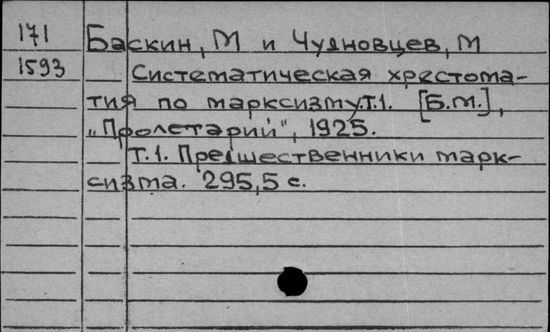 171 Баскин, М и Чуяновцев, М
1593 Систематическая хрестома-
тия по марксизму. Т.1. [Б.М.],
„Пролетарий“, 1925.
Т.1. Предшественники марк-
сизма. 295,5 с.